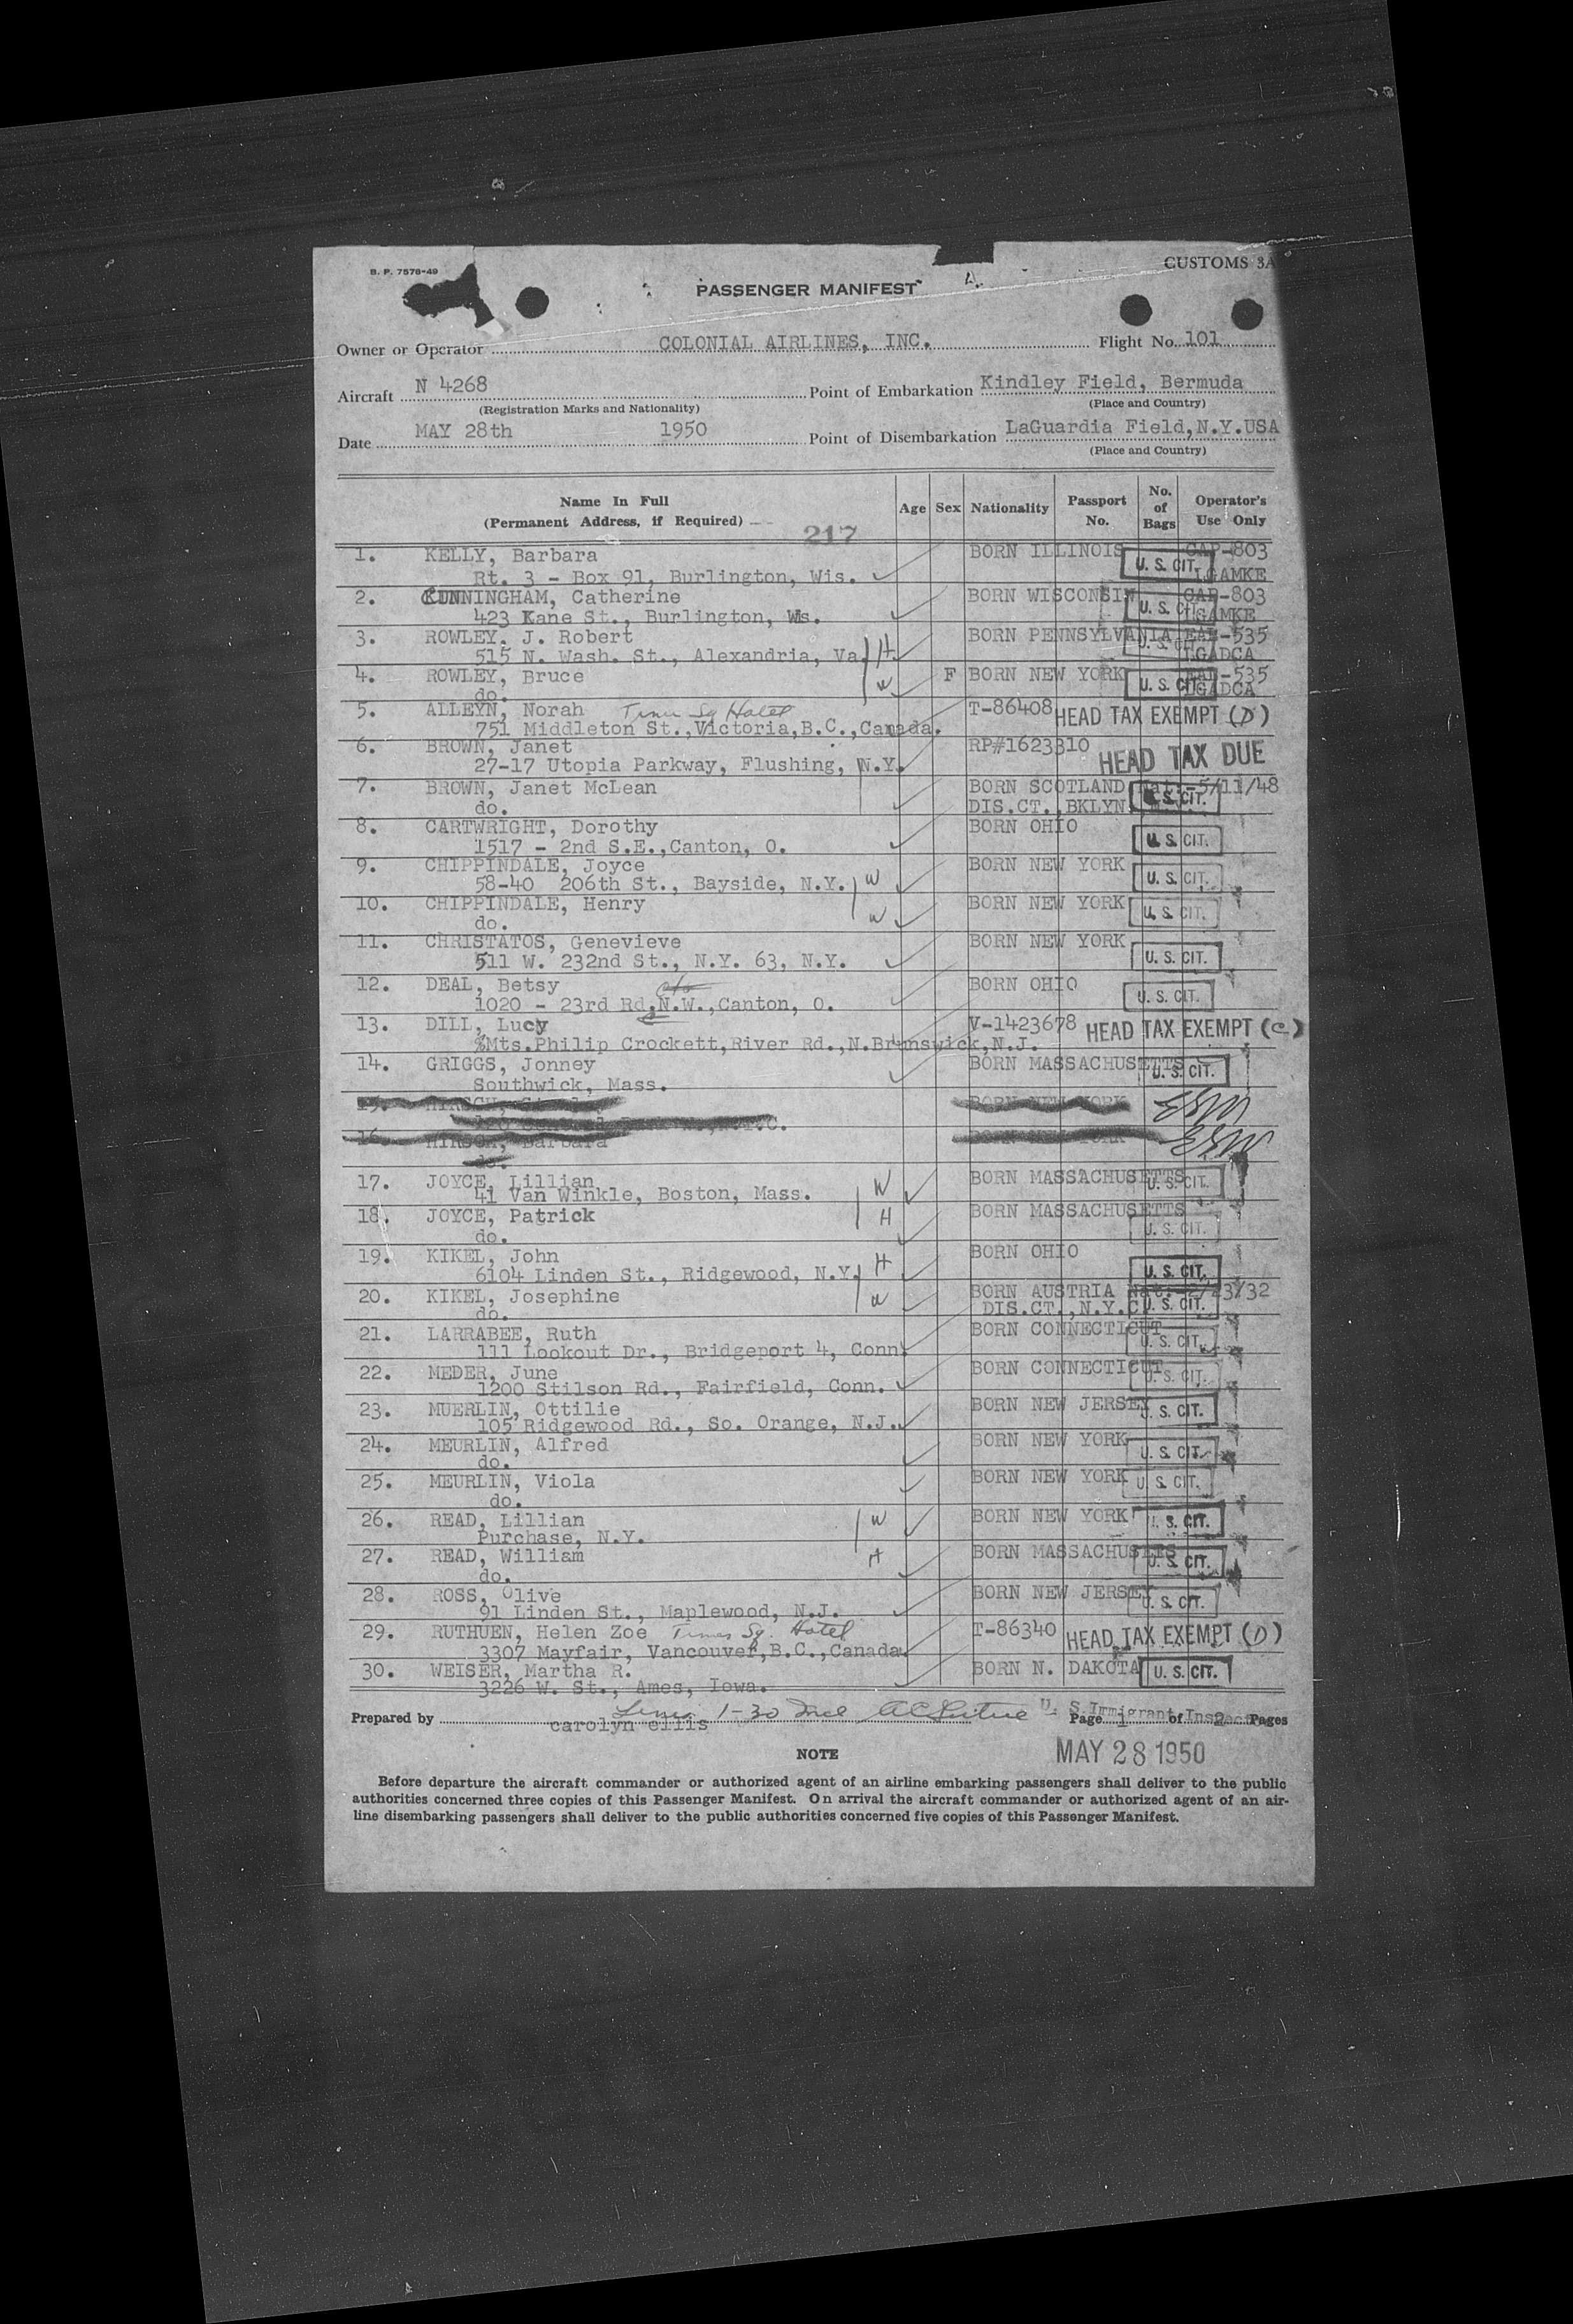 B. P. 7578-49
CUSTOMS 3A
PASSENGER MANIFEST
Owner or Operator COLONIAL AIRLINES, INC. Flight No. 101
Aircraft N 4268 Point of Embarkation Kindley Field, Bermuda
(Registration Marks and Nationality) (Place and Country)
Date MAY 28th 1950 Point of Disembarkation LaGuardia Field, N.Y. USA
(Place and Country)
Name In Full (Permanent Address, if Required) Age Sex Nationality Passport No. No. of Bags Operator's Use Only
217
1. KELLY, Barbara BORN ILLINOIS U. S. CIT. CAP-803
Rt. 3 - Box 91, Burlington, Wis. LGAMKE
2. CUNNINGHAM, Catherine BORN WISCONSIN U. S. CIT. CAP-803
423 Kane St., Burlington, Ws. LGAMKE
3. ROWLEY, J. Robert BORN PENNSYLVANIA U. S. CIT. EAL-535
515 N. Wash. St., Alexandria, Va. H LGADCA
4. ROWLEY, Bruce F BORN NEW YORK U. S. CIT. EAL-535
do. W LGADCA
5. ALLEYN, Norah Times Sq Hotel T-86408 HEAD TAX EXEMPT (D)
751 Middleton St., Victoria, B.C., Canada.
6. BROWN, Janet RP#1623310 HEAD TAX DUE
27-17 Utopia Parkway, Flushing, N.Y.
7. BROWN, Janet McLean BORN SCOTLAND Nat:-5/11/48
do. DIS.CT., BKLYN U. S. CIT.
8. CARTWRIGHT, Dorothy BORN OHIO U. S. CIT.
1517 - 2nd S.E., Canton, O.
9. CHIPPINDALE, Joyce BORN NEW YORK U. S. CIT.
58-40 206th St., Bayside, N.Y. W
10. CHIPPINDALE, Henry BORN NEW YORK U. S. CIT.
do. W
11. CHRISTATOS, Genevieve BORN NEW YORK U. S. CIT.
511 W. 232nd St., N.Y. 63, N.Y.
12. DEAL, Betsy BORN OHIO U. S. CIT.
1020 - 23rd Rd, N.W., Canton, O.
13. DILL, Lucy V-1423678 HEAD TAX EXEMPT (C)
%Mts. Philip Crockett, River Rd., N. Brunswick, N.J.
14. GRIGGS, Jonney BORN MASSACHUSETTS U. S. CIT.
Southwick, Mass.
15. HIRSCH, BORN NEW YORK
16. HIRSCH, Barbara BORN NEW YORK
do.
17. JOYCE, Lillian W BORN MASSACHUSETTS U. S. CIT.
41 Van Winkle, Boston, Mass.
18. JOYCE, Patrick H BORN MASSACHUSETTS U. S. CIT.
do.
19. KIKEL, John H BORN OHIO U. S. CIT.
6104 Linden St., Ridgewood, N.Y.
20. KIKEL, Josephine W BORN AUSTRIA Nat:-2/23/32
do. DIS.CT., N.Y.C. U. S. CIT.
21. LARRABEE, Ruth BORN CONNECTICUT U. S. CIT.
111 Lookout Dr., Bridgeport 4, Conn.
22. MEDER, June BORN CONNECTICUT U. S. CIT.
1200 Stilson Rd., Fairfield, Conn.
23. MUERLIN, Ottilie BORN NEW JERSEY U. S. CIT.
105 Ridgewood Rd., So. Orange, N.J.
24. MEURLIN, Alfred BORN NEW YORK U. S. CIT.
do.
25. MEURLIN, Viola BORN NEW YORK U. S. CIT.
do.
26. READ, Lillian W BORN NEW YORK U. S. CIT.
Purchase, N.Y.
27. READ, William H BORN MASSACHUSETS U. S. CIT.
do.
28. ROSS, Olive BORN NEW JERSEY U. S. CIT.
91 Linden St., Maplewood, N.J.
29. RUTHUEN, Helen Zoe Times Sq. Hotel T-86340 HEAD TAX EXEMPT (D)
3307 Mayfair, Vancouver, B.C., Canada
30. WEISER, Martha R. BORN N. DAKOTA U. S. CIT.
3226 W. St., Ames, Iowa.
Lines 1-30 Incl U. S. Immigrant Inspector
Prepared by carolyn ellis Page 1 of 2 Pages
NOTE MAY 28 1950
Before departure the aircraft commander or authorized agent of an airline embarking passengers shall deliver to the public
authorities concerned three copies of this Passenger Manifest. On arrival the aircraft commander or authorized agent of an air-
line disembarking passengers shall deliver to the public authorities concerned five copies of this Passenger Manifest.